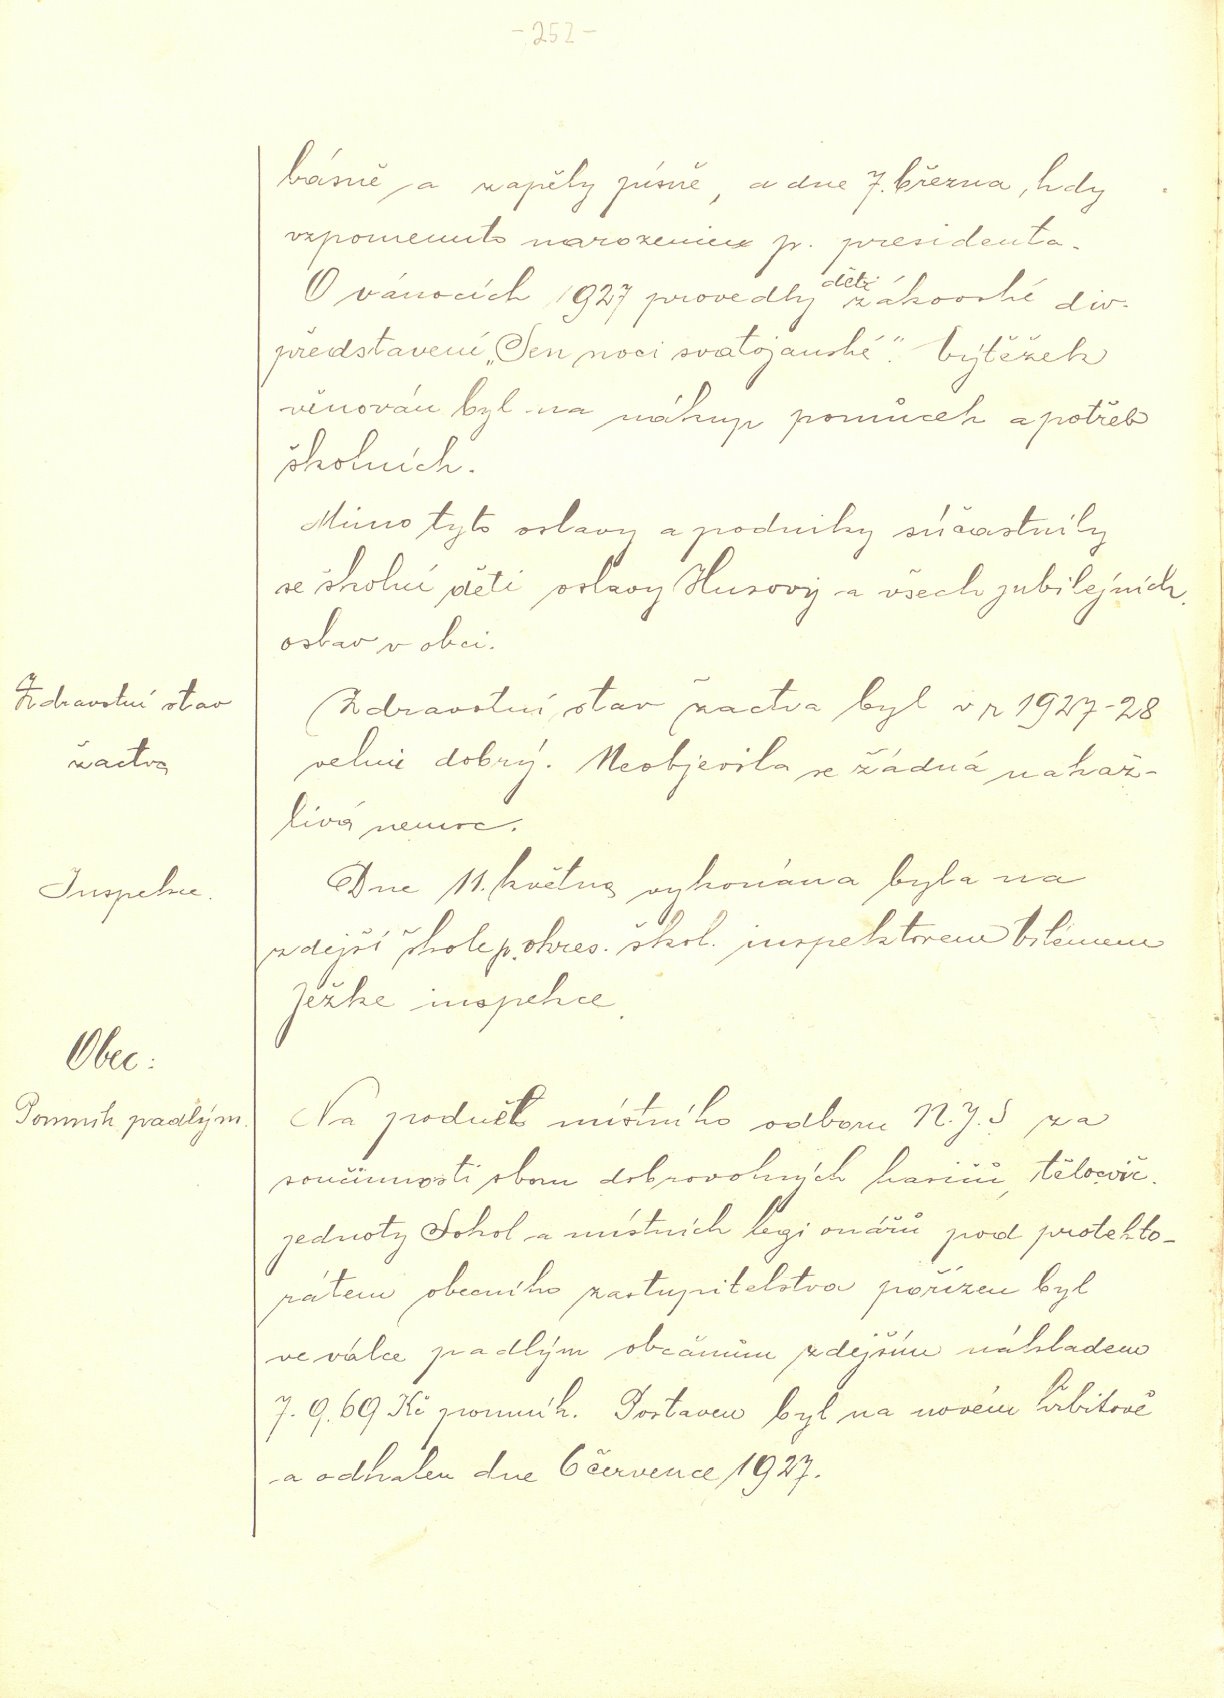 - 252 -
básně a zapěly písně, a dne 7. března, kdy
vzpomenuto narozenin p. presidenta.
O vánocích 1927 provedly děti žákovské div.
představení „Sen noci svatojanské". Výtěžek
věnován byl na nákup pomůcek a potřeb
školních.
Mimo tyto oslavy a podniky súčastnily
se školní děti oslavy Husovy a všech jubilejních
oslav v obci.
Zdravotní stav
žactva
Zdravotní stav žactva byl v r 1927-28
velmi dobrý. Neobjevila se žádná nakaž-
livá nemoc.
Inspekce.
Dne 11. května vykonána byla na
zdejší škole p. okres. škol. inspektorem Vilémem
Ježke inspekce.
Obec:
Pomník padlým.
Na podnět místního odboru N.J.S za
součinnosti sboru dobrovolných hasičů, tělocvič.
jednoty Sokol a místních legionářů pod protekto-
rátem obecního zastupitelstva pořízen byl
ve válce padlým občanům zdejším nákladem
7.9.69 Kč pomník. Postaven byl na novém hřbitově
a odhalen dne 6 července 1927.